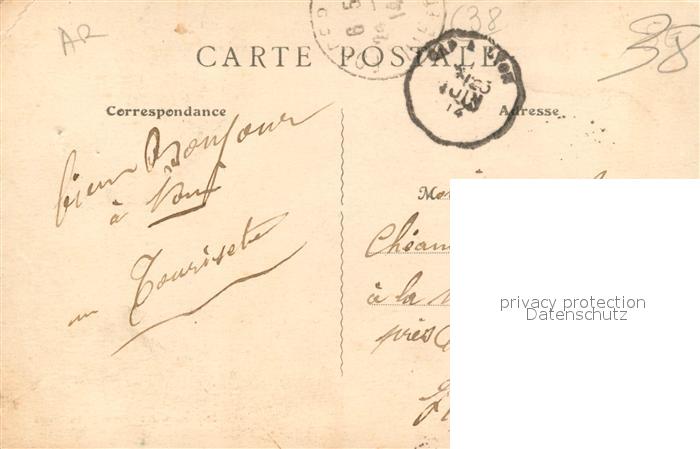 AR
(38
38
CARTE POSTALE
GAP A LYON
23
JUIN
14
Correspondance
Adresse
bien Bonjour
à Vous
un Touriste
Chéam
à la
près
privacy protection
Datenschutz